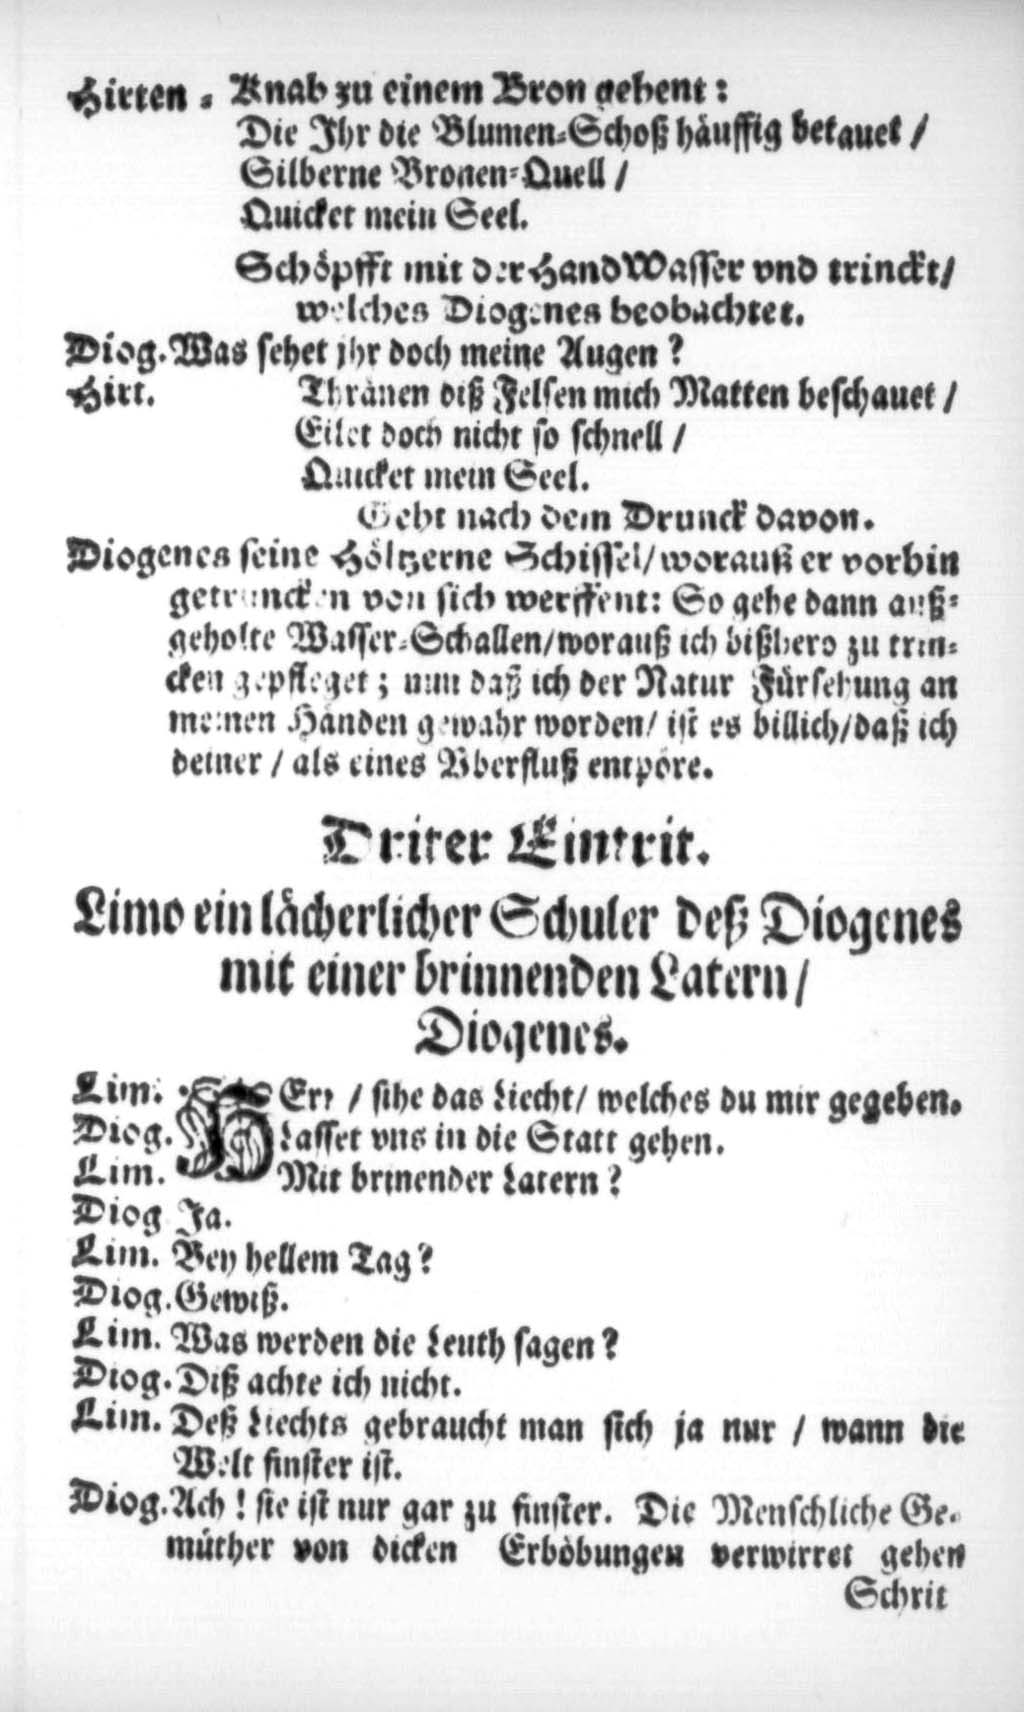 Hirten-Knab zu einem Bron gehent:
Die Jhr die Blumen-Schoß häuffig betauet /
Silberne Bronen-Quell /
Quicket mein Seel.
Schöpfft mit der Hand Wasser vnd trinckt/
welches Diogenes beobachtet.
Diog. Was sehet jhr doch meine Augen?
Hirt. Thränen diß Felsen mich Matten beschauet /
Eilet doch nicht so schnell /
Quicket mein Seel.
Geht nach dem Drunck davon.
Diogenes seine Höltzerne Schissel/worauß er vorhin
getruncken von sich werffent: So gehe dann auß-
geholte Wasser-Schallen/worauß ich bißhero zu trin-
cken gepfleget; nun daß ich der Natur Fürsehung an
meinen Händen gewahr worden/ ist es billich/daß ich
deiner / als eines Vberfluß entpöre.
Driter Eintrit.
Limo ein lächerlicher Schuler deß Diogenes
mit einer brinnenden Latern/
Diogenes.
Lim. HErr / sihe das Liecht/ welches du mir gegeben.
Diog. Lasset vns in die Statt gehen.
Lim. Mit brinender Latern?
Diog Ja.
Lim. Bey hellem Tag?
Diog. Gewiß.
Lim. Was werden die Leuth sagen?
Diog. Diß achte ich nicht.
Lim. Deß Liechts gebraucht man sich ja nur / wann die
Welt finster ist.
Diog. Ach! sie ist nur gar zu finster. Die Menschliche Ge-
müther von dicken Erhöbungen verwirret gehen
Schrit